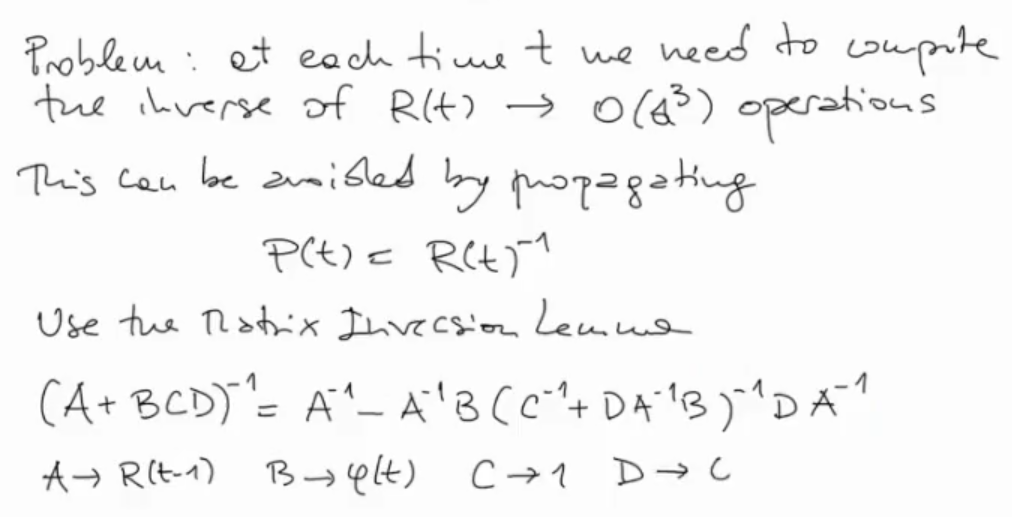 Problem : at each time t we need to compute
the inverse of R(t) → O(d³) operations
This can be avoided by propagating
P(t) = R(t)⁻¹
Use the Matrix Inversion Lemma
(A + BCD)⁻¹ = A⁻¹ - A⁻¹B (C⁻¹ + DA⁻¹B)⁻¹ D A⁻¹
A → R(t-1) B → φ(t) C → 1 D → C